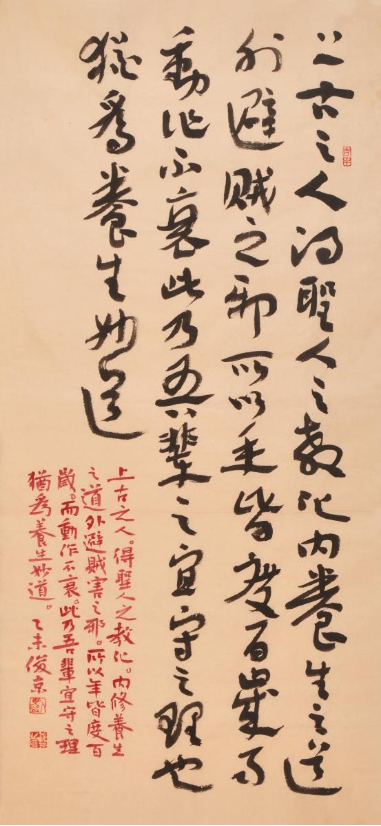 上古之人得聖人之教化内養生之道
外避賊之邪所以年皆度百歲而
動作不衰此乃吾輩之宜守之理也
猶為養生妙道
上古之人。得聖人之教化。内修養生
之道外避賊害之邪。所以年皆度百
歲。而動作不衰。此乃吾輩宜守之理
猶為養生妙道。乙未俊京